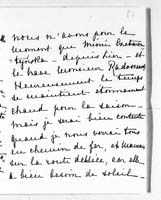 nous n'avons pour le
moment que Mimi
depuis hier - et
le beau Monsieur
Heureusement le temps
se maintient étonnament
chaud pour la saison -
mais je serai bien contente
quand je vous verrai tous
en chemin de fer, et Maman
sur la route désirée, car elle
a bien besoin de soleil -